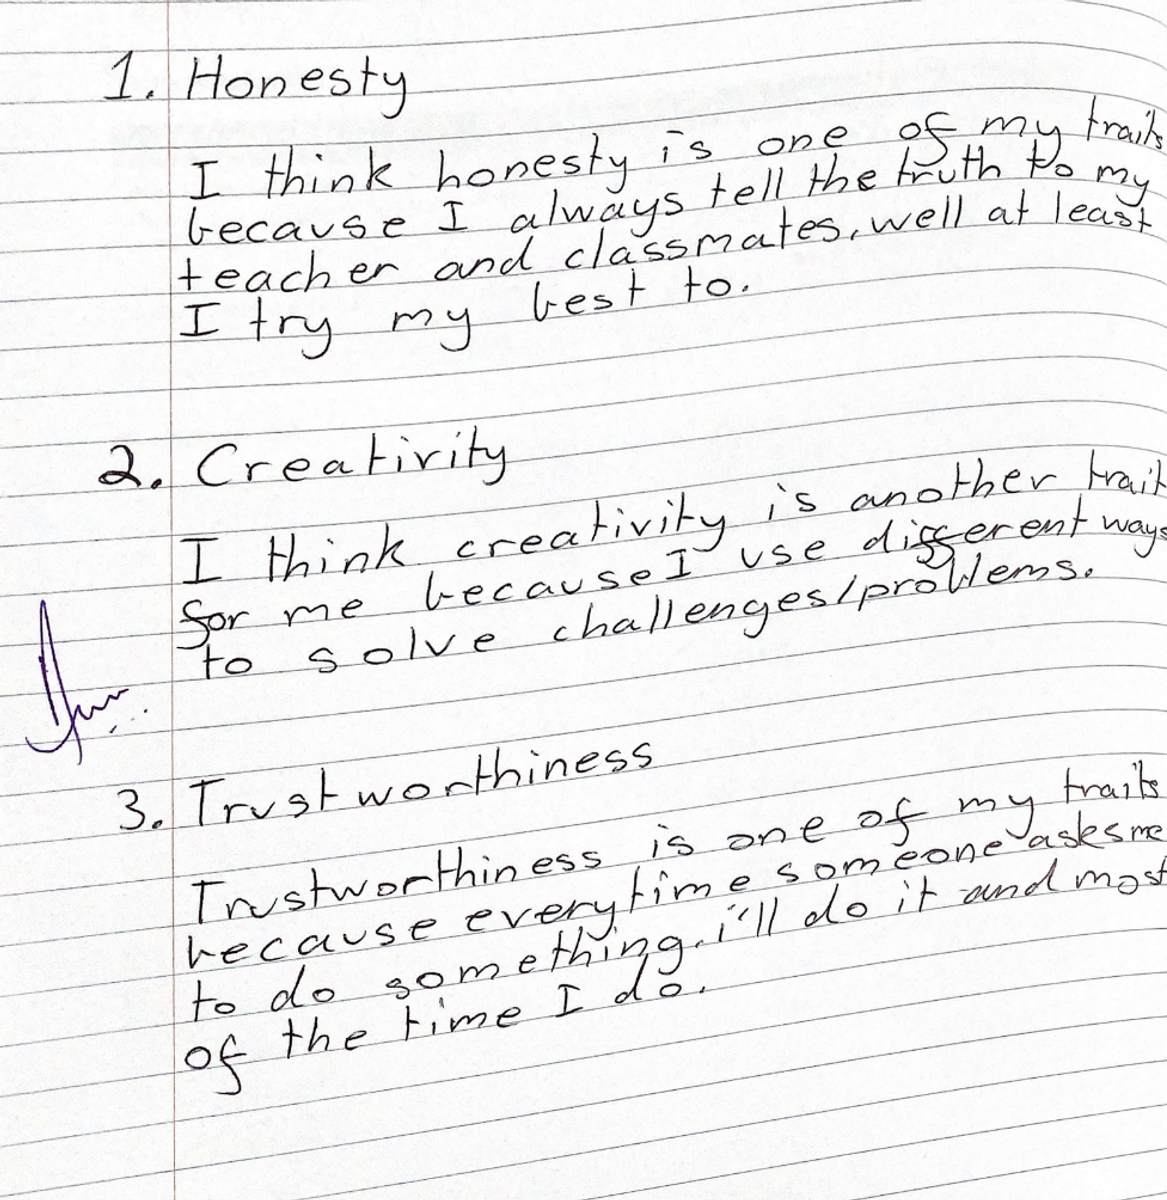 1. Honesty
I think honesty is one of my traits
because I always tell the truth to my
teacher and classmates, well at least
I try my best to.
2. Creativity
I think creativity is another trait
for me because I use different ways
to solve challenges/problems.
3. Trustworthiness
Trustworthiness is one of my traits
because everytime someone asks me
to do something, i'll do it and most
of the time I do.